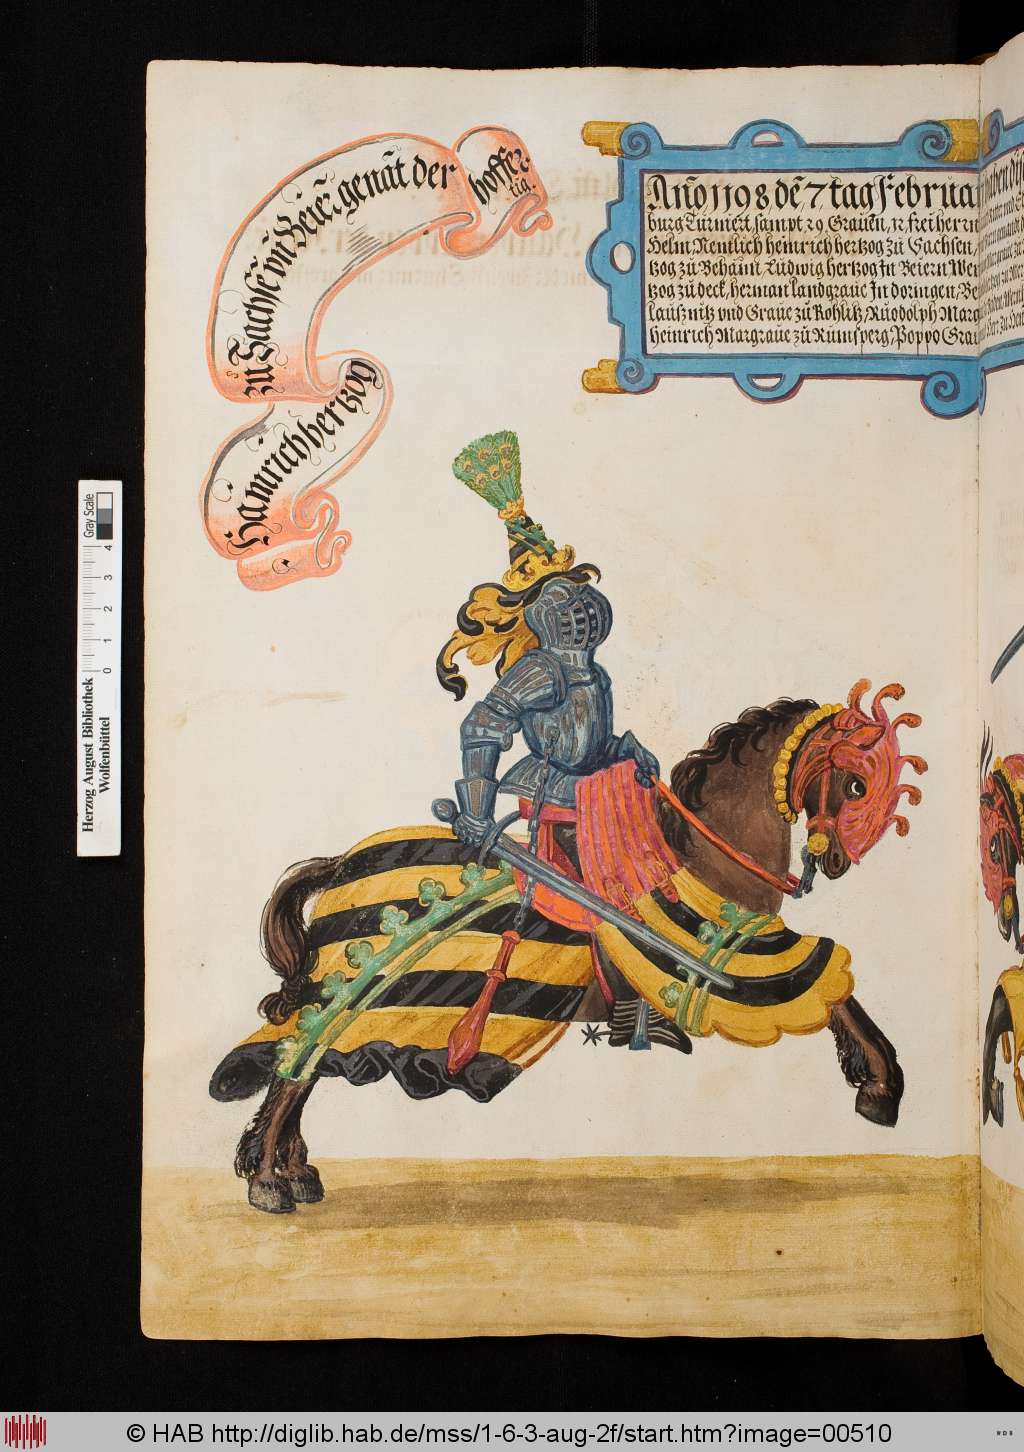 Hainrich hertzog
zu Sachsē vn̄ Beiern genāt der
hoffer-
tig.
Año 1198 dē 7 tag Februa
burg Turniert, sampt 29 Grauen, 12 frei herrn
Helm Nemlich heinrich hertzog zü Sachsen,
tzog zü Beham, Ludwig hertzog In Beiern
tzog zü deck, herman landgraue In doringen, Be
Laußnitz vnd Graue zü Rohlitz, Ruodolph Marg
heinrich Margraue zü Rumsperg, Poppo Grau
Herzog August Bibliothek
Wolfenbüttel
0 1 2 3 4
Gray Scale
© HAB http://diglib.hab.de/mss/1-6-3-aug-2f/start.htm?image=00510